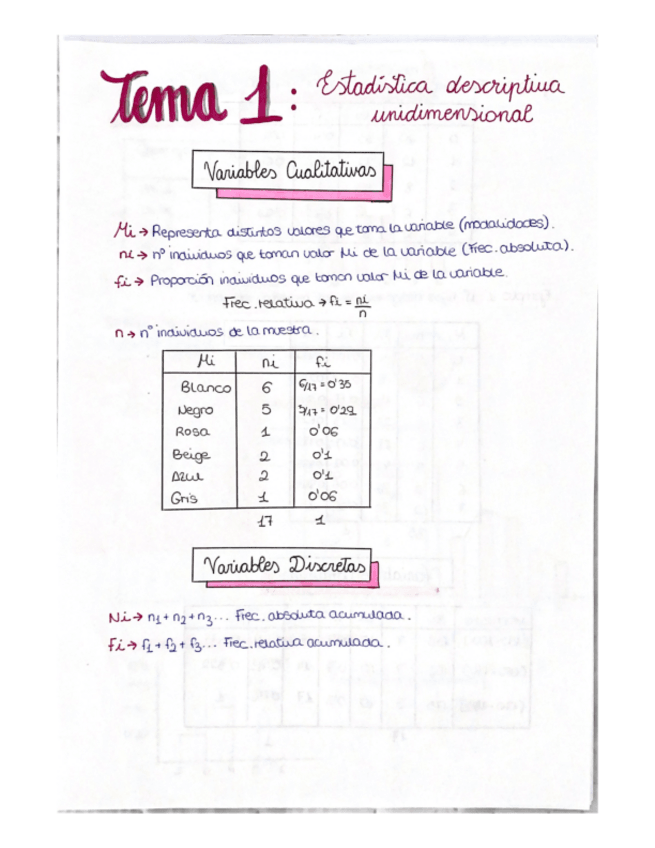 Tema 1: Estadística descriptiva
unidimensional
Variables Cualitativas
Mi → Representa distintos valores que toma la variable (modalidades).
ni → nº individuos que toman valor Mi de la variable (Frec. absoluta).
fi → Proporción individuos que toman valor Mi de la variable.
Frec. relativa → fi = ni/n
n → nº individuos de la muestra.
Mi ni fi
Blanco 6 6/17 = 0'35
Negro 5 5/17 = 0'29
Rosa 1 0'06
Beige 2 0'1
Azul 2 0'1
Gris 1 0'06
17 1
Variables Discretas
Ni → n1 + n2 + n3... Frec. absoluta acumulada.
Fi → f1 + f2 + f3... Frec. relativa acumulada.